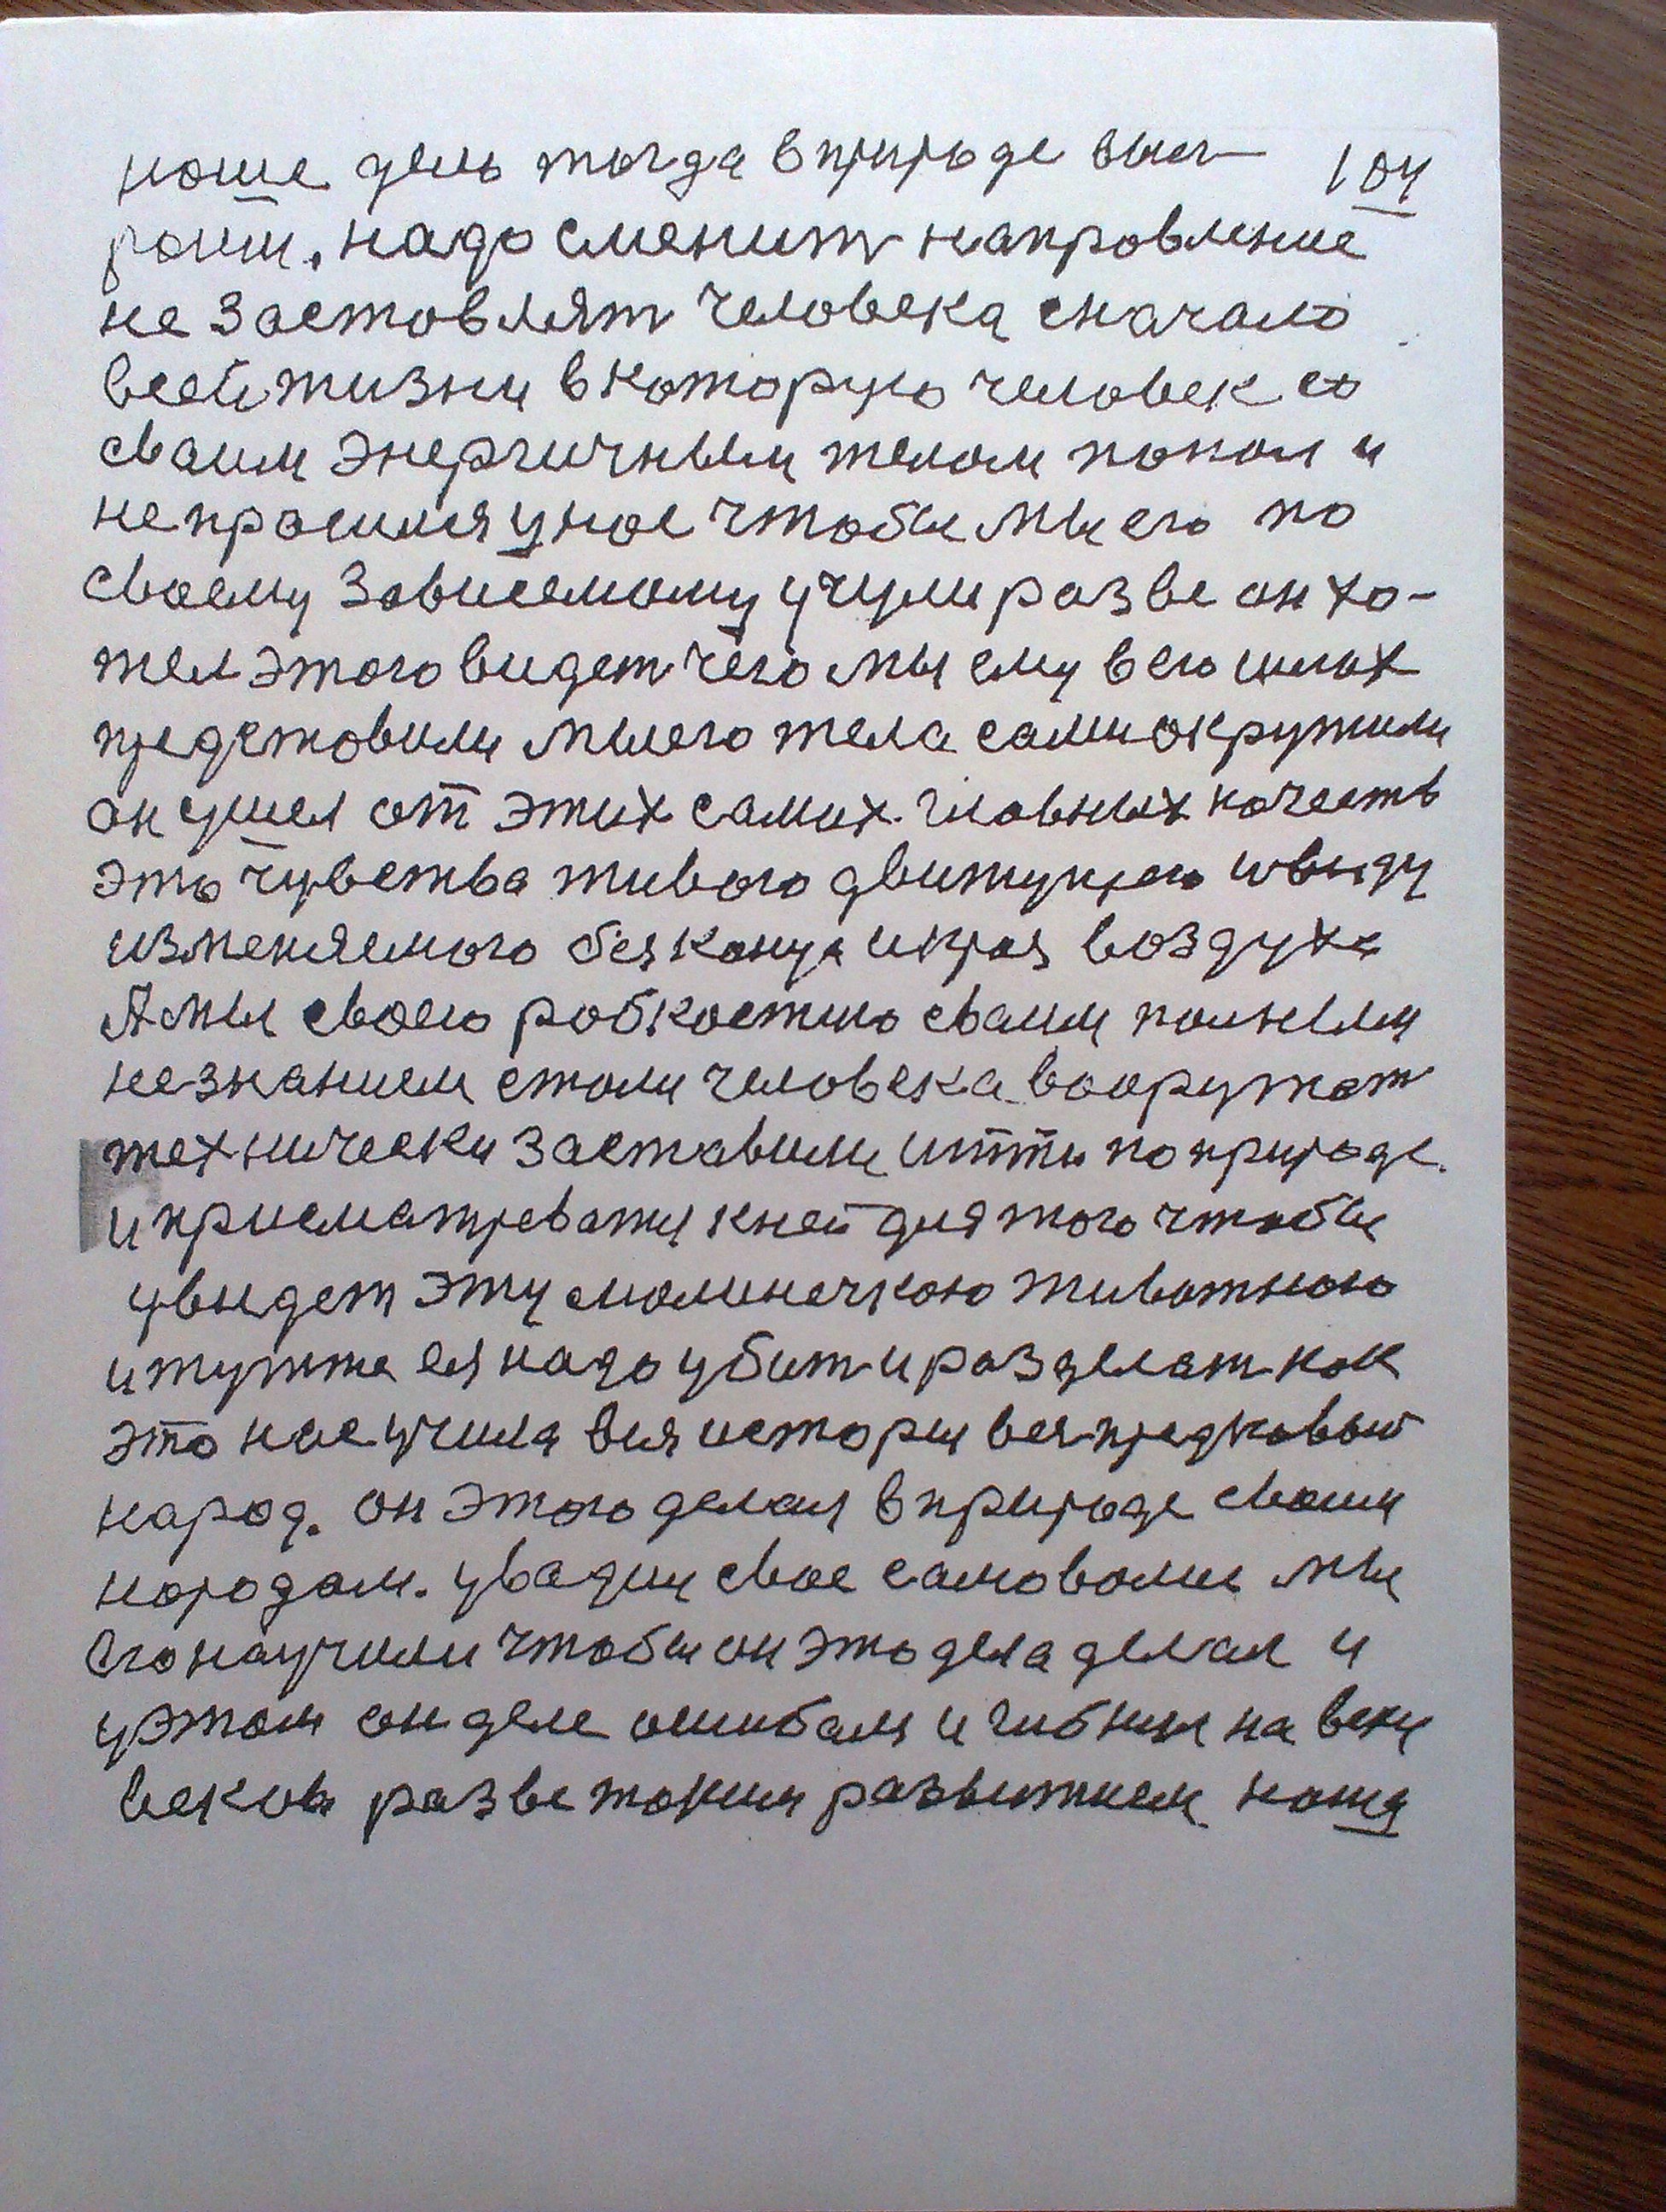 наше дель тогда в природе выг- 104
раит. надо сменит направление
не заставлят человека сначало
всей жизни в которую человек со
сваим энергичным телом попал и
не прасился у нас чтобы мы его по
своему зависемому учули разве он хо-
тел этого видет чего мы ему в его
представили мы его тела сами окружили
он ушел от этих самих главных качеств
это чувства живого движущего
изменяемого без конца и края воздуха
А мы своею робкостью сваим полным
незнанием стали человека вооружат
технически заставили итти по природе.
и присматреватся к ней для того чтобы
увидет эту малинечкою животною
и тутже ея надо убит и разделат как
это нас учила вся история вся предковый
народ. он этого делал в природе сваим
народам. увадил свое самоволие мы
его научили чтобы он это дела делал и
у этом он деле ошибался и гибнил на веки
веков разве таким развитием наша